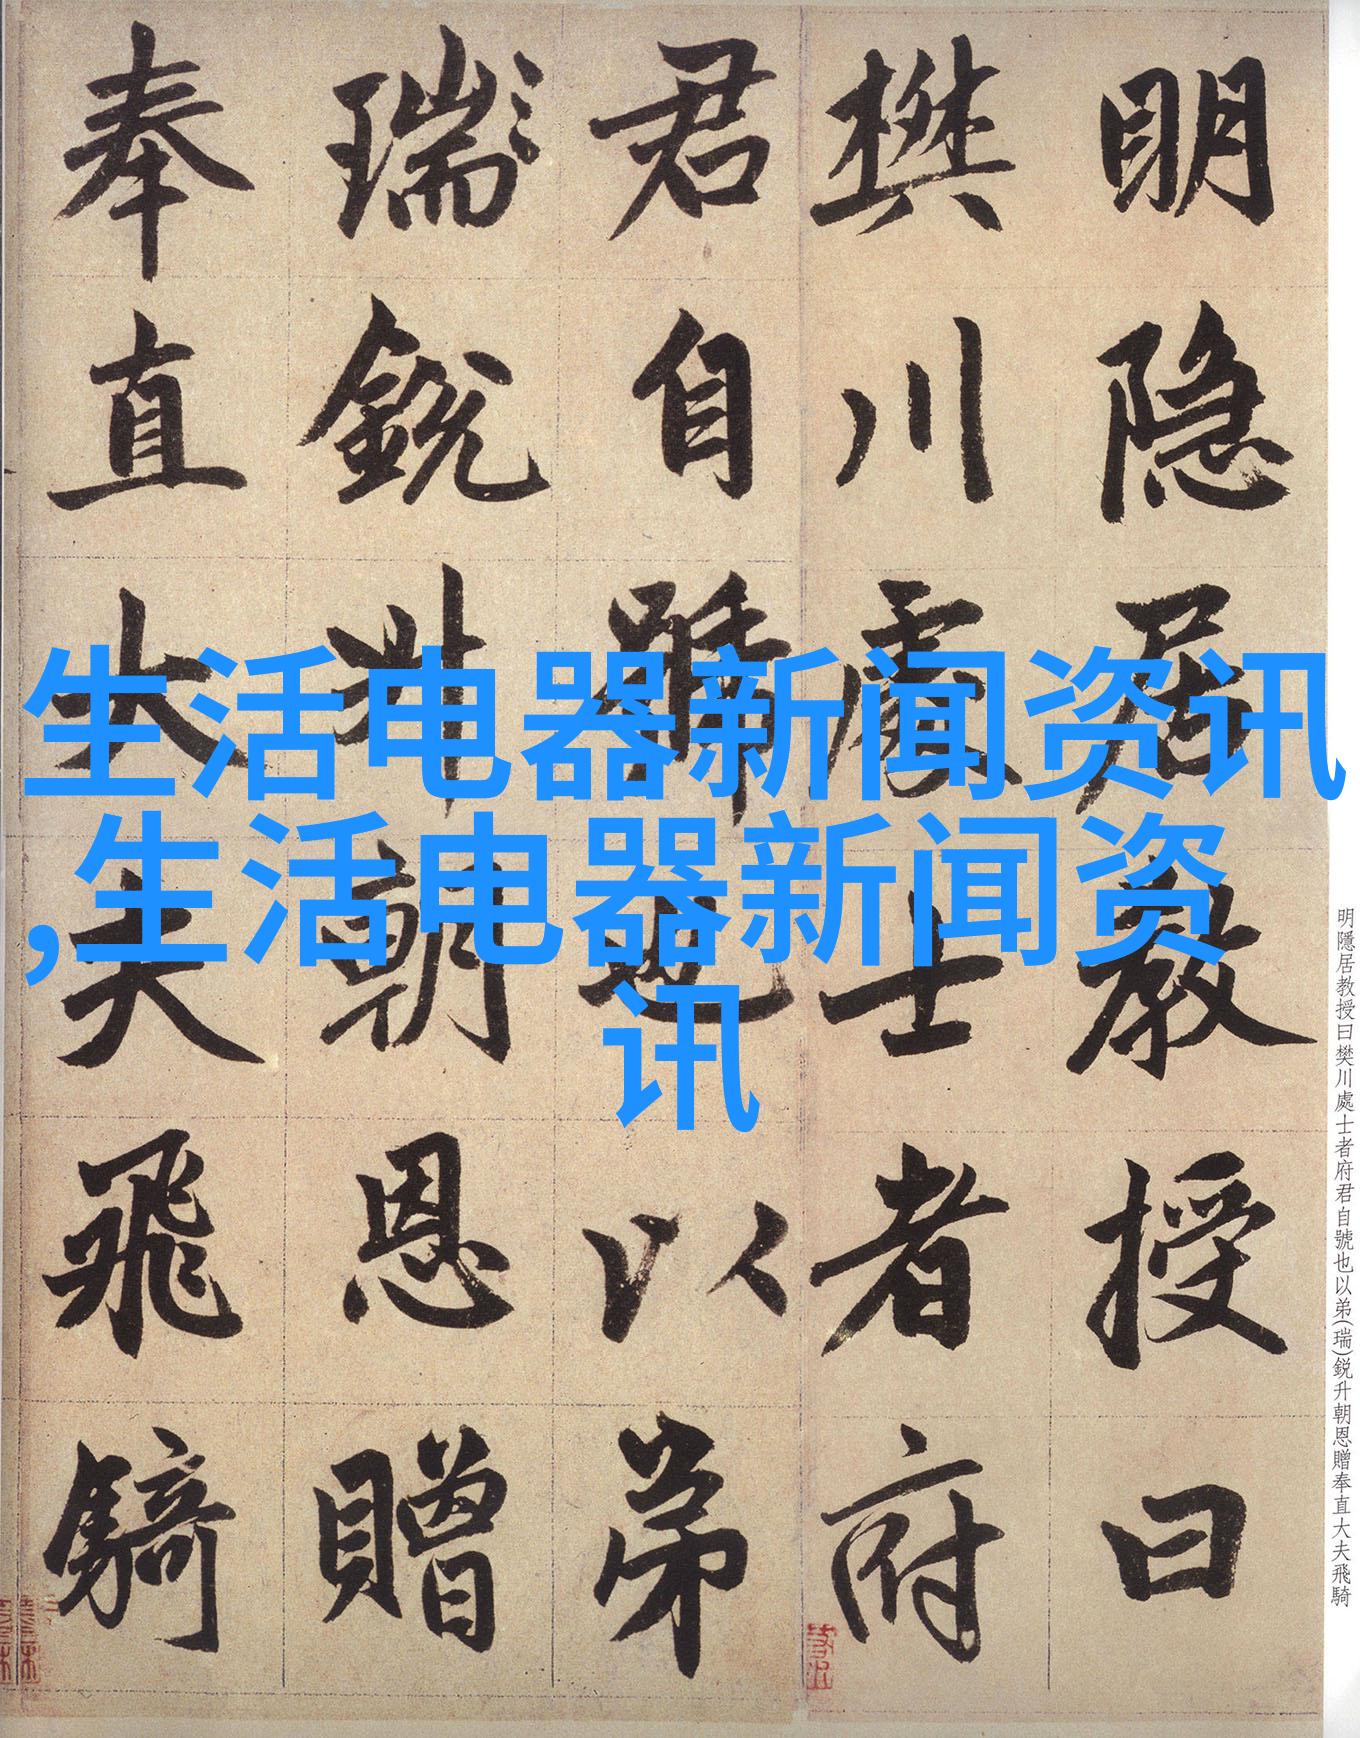 生活电器新闻资讯
,生活电器新闻资
讯
明隐居教授曰
樊川處士者府
君自號也以弟
瑞鋭升朝恩贈
奉直大夫飛騎
明隱居教授曰樊川處士者府君自號也以弟(瑞)鋭升朝恩贈奉直大夫飛騎